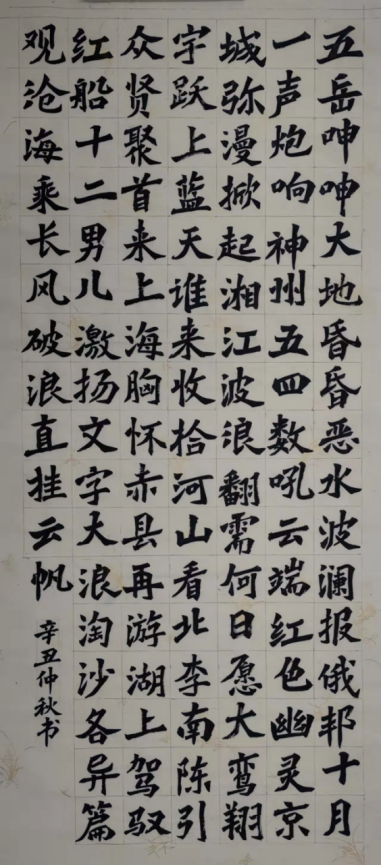 五岳呻呻大地昏昏恶水波澜报俄邦十月
一声炮响神州五四数吼云端红色幽灵京
城弥漫掀起湘江波浪翻需何日愿大鸾翔
宇跃上蓝天谁来收拾河山看北李南陈引
众贤聚首来上海胸怀赤县再游湖上驾驭
红船十二男儿激扬文字大浪淘沙各异篇
观沧海乘长风破浪直挂云帆
辛丑仲秋书